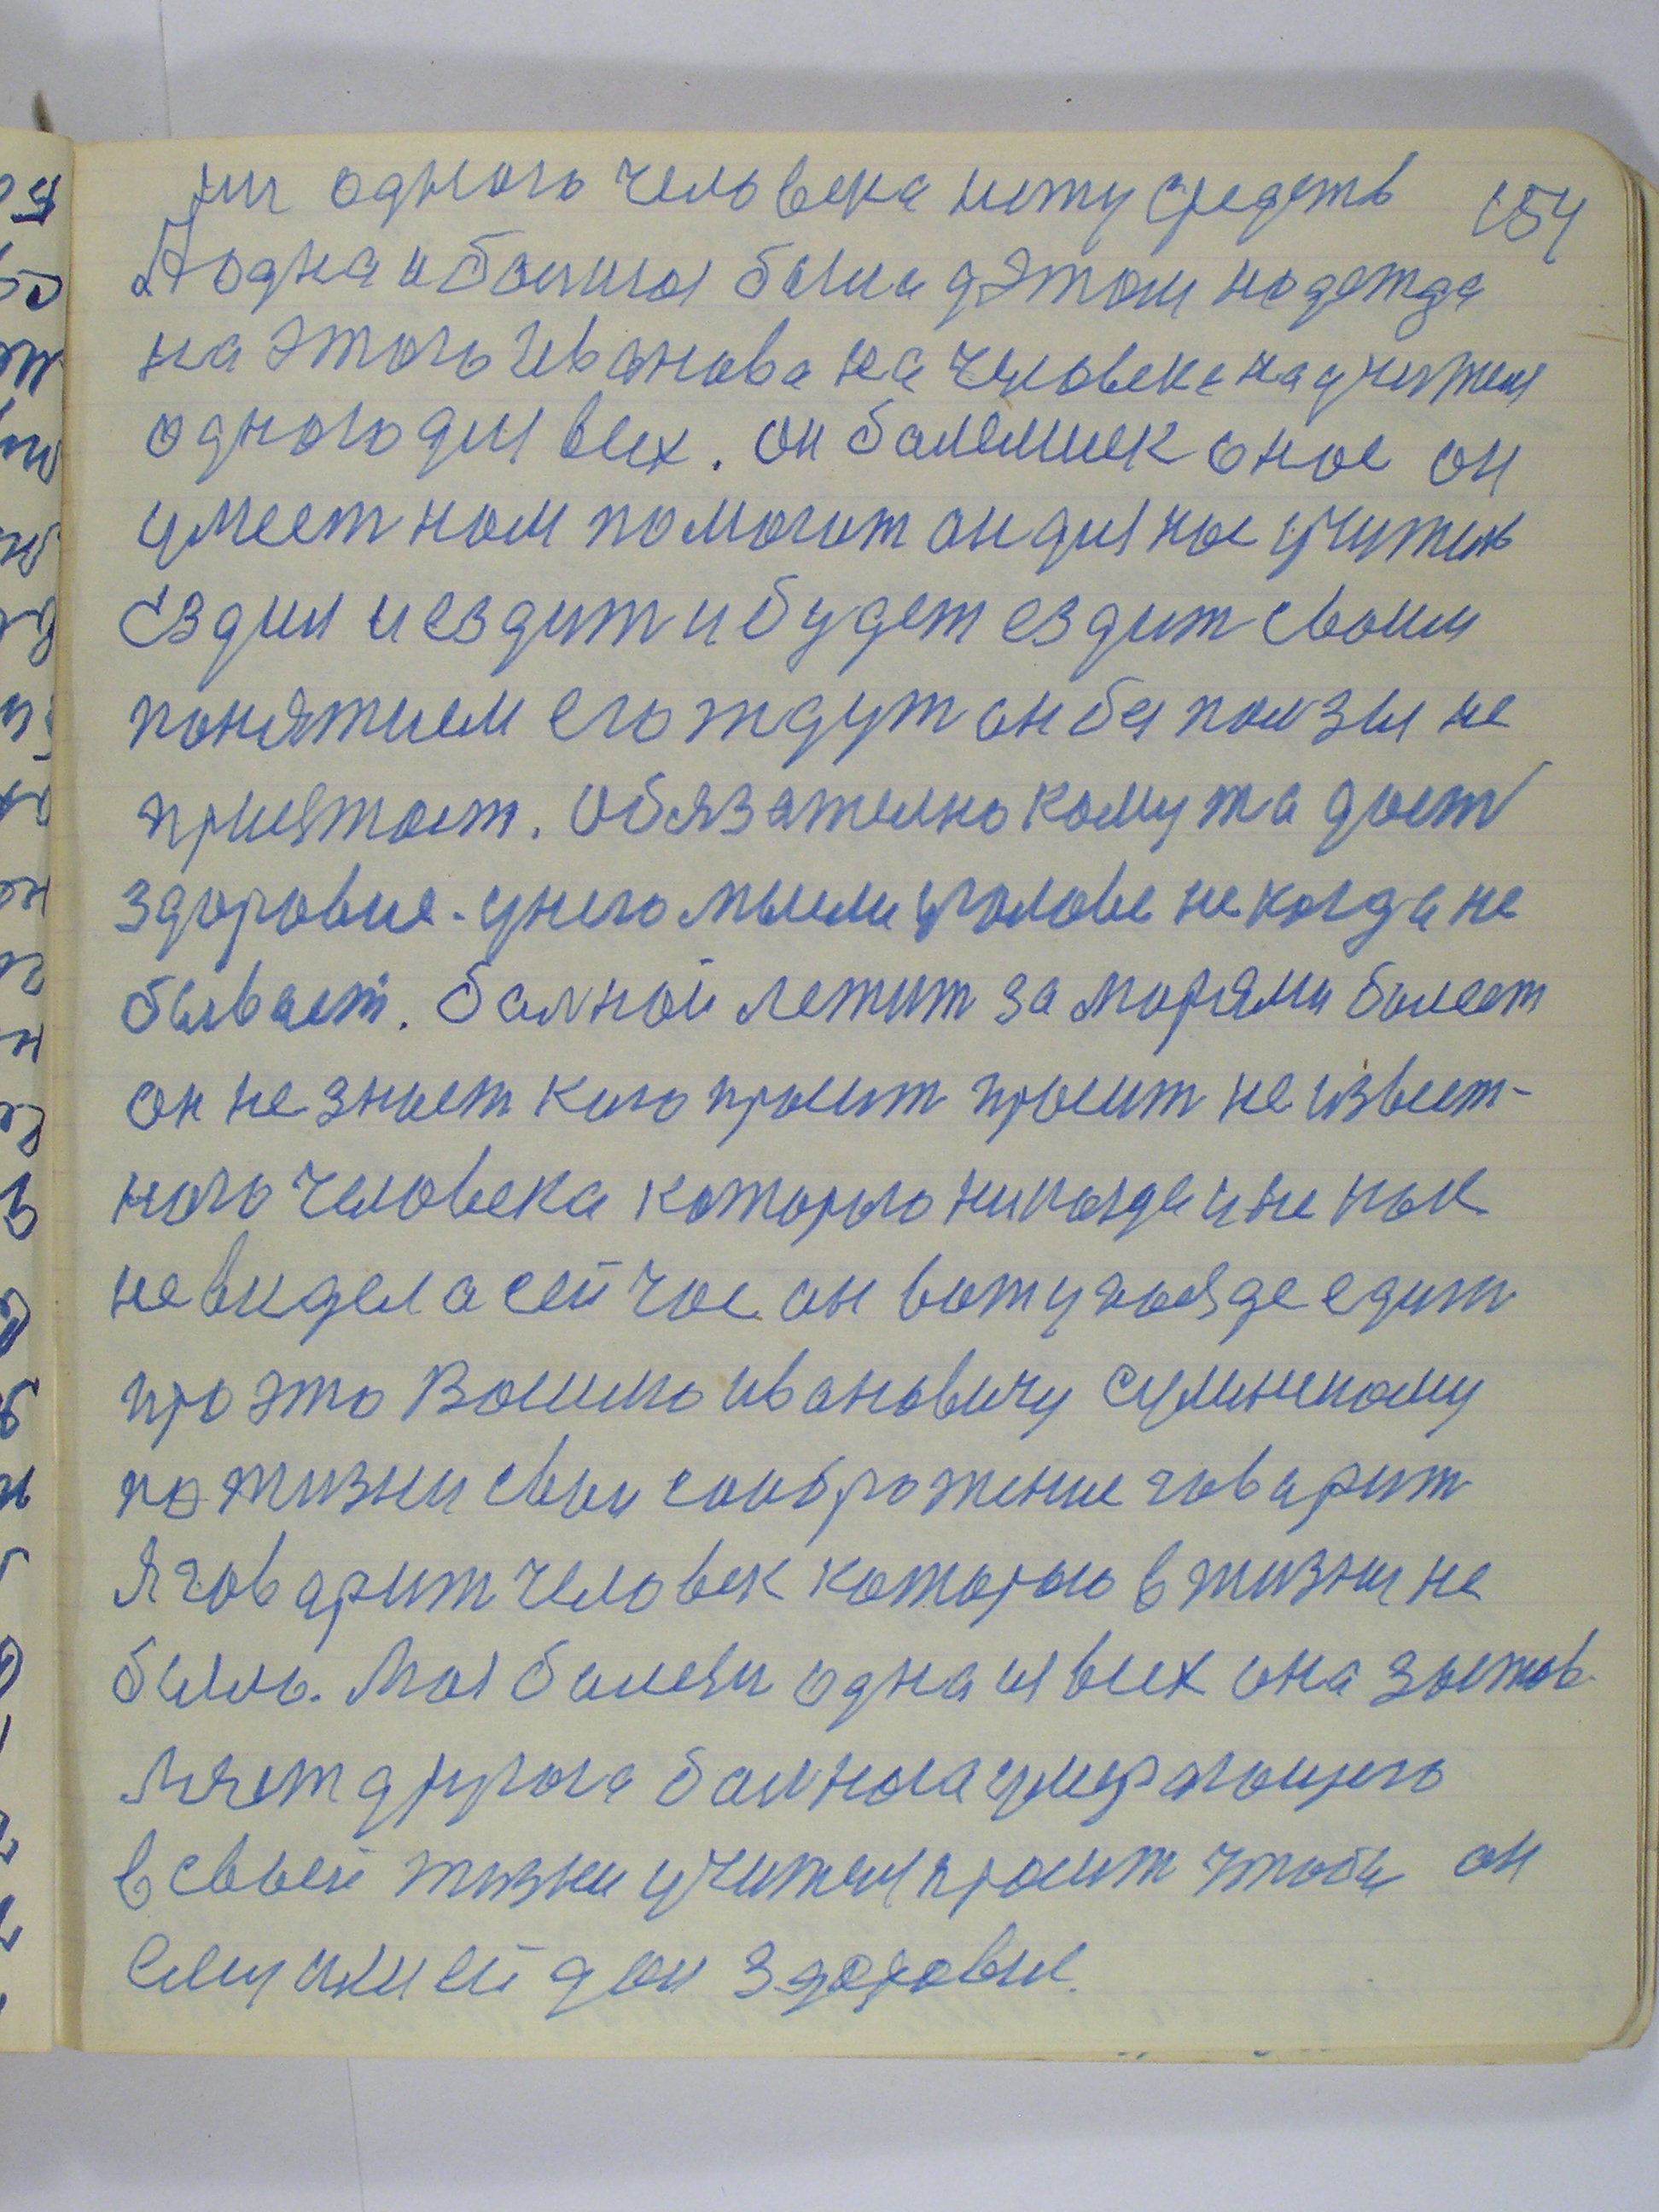 ни одного человека нету средств 154
А одна и большая была у этом надежда
на этого Иванова на человека на учителя
одного для всех. он болельшек о нас он
умеет нам помогат он для нас учитель
Ездил и ездит и будет ездит своим
понятием его ждут он без ползы не
приятает. обязателно кому та даст
здоровие. у него мысли у голове некогда не
бывает. балной летит за морями болеет
он не знает кого просит просит неизвест-
ного человека которого никогда и не как
не видел а сейчас он в ету поезде едит
про это Василю ивановичу
по жизни свои соображение говарит
Я говарит человек которого в жизни не
было. Моя болезн одна из всех она застав-
ляет другога балнога умерающего
в своей жизни учителя просит чтобы он
ей дал здоровие.